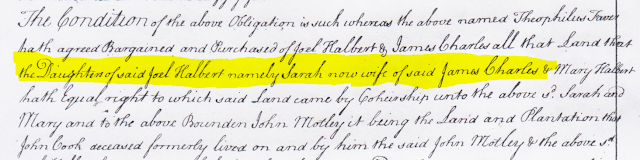 The Condition of the above Obligation is such whereas the above named Theophilus Faver
hath agreed Bargained and Purchased of Joel Halbert & James Charles all that Land that
the Daughters of said Joel Halbert namely Sarah now wife of said James Charles & Mary Halbert
hath Equal right to which said Land came by Coheirship unto the above sd. Sarah and
Mary and to the above Bounden John Motley it being the Land and Plantation that
John Cook deceased formerly lived on and by him the said John Motley & the above sd.